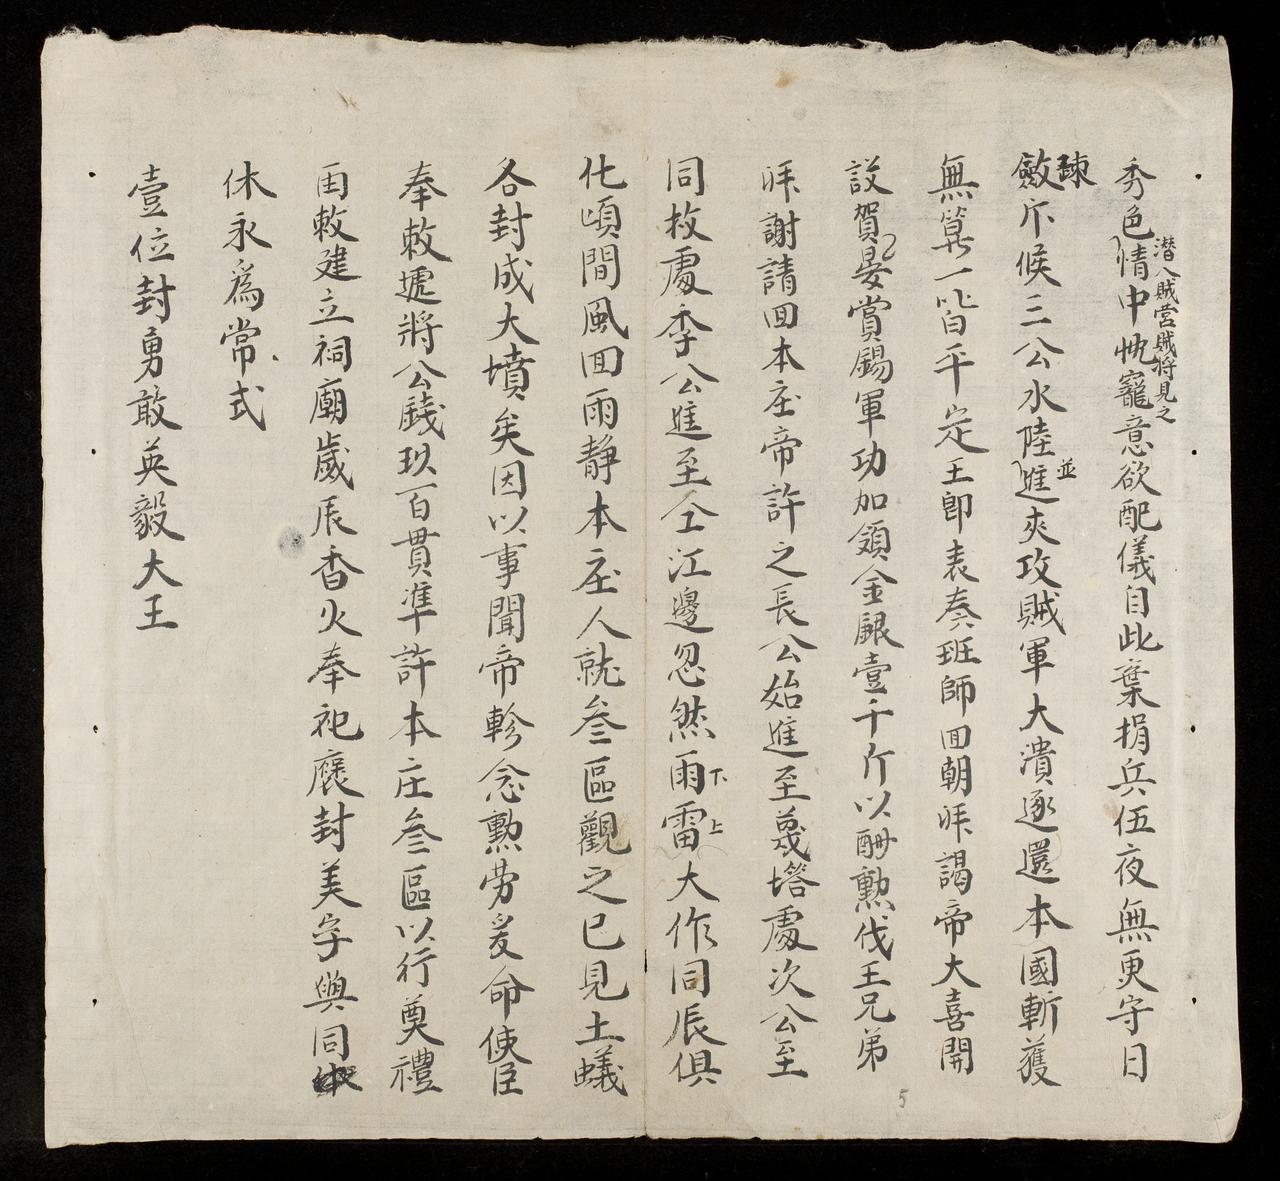 秀色情中忱寵意欲配儀自此棄捐兵伍夜無更守日
潜入賊営賊将見之
疎
斂斥候三公水陸進夾攻賊軍大潰逐還本國斬獲
並
無筭一皆平定王即表奏班師囬朝拜謁帝大喜開
設賀晏賞錫軍功加領金銀壹千斤以酧勲伐王兄弟
拜謝請囬本庄帝許之長公始進至蔑塔處次公至
同枚處季公進至仝江邊忽然雨雷大作同辰俱
下
上
化頃間風囬雨静本庄人就叁區觀之已見土蟻
各封成大墳矣因以事聞帝軫念勲劳爰命使臣
奉敕遞將公錢玖百貫準許本庄叁區以行奠禮
由敕建立祠廟歲辰香火奉祀褒封美字與同
休永為常式
壹位封勇敢英毅大王
5